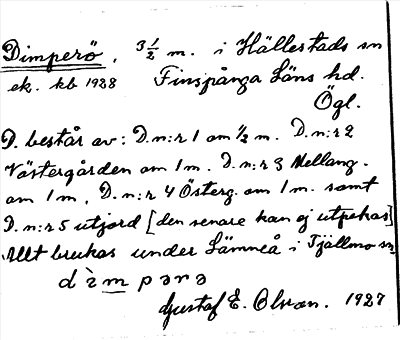 Dimperö, 3½ m. i Hällestads sn
ek. kb 1928 Finspånga Läns hd.
Ögl.
D. består av: D.n:r 1 om ½ m. D.n:r 2
Västergården om 1 m. D.n:r 3 Mellang.
om 1 m, D.n:r 4 Österg. om 1 m. samt
D.n:r 5 utjord [den senare kan ej utpekas]
Allt brukas under Sämneå i Tjällmo sn
Gustaf E. Olsson. 1927